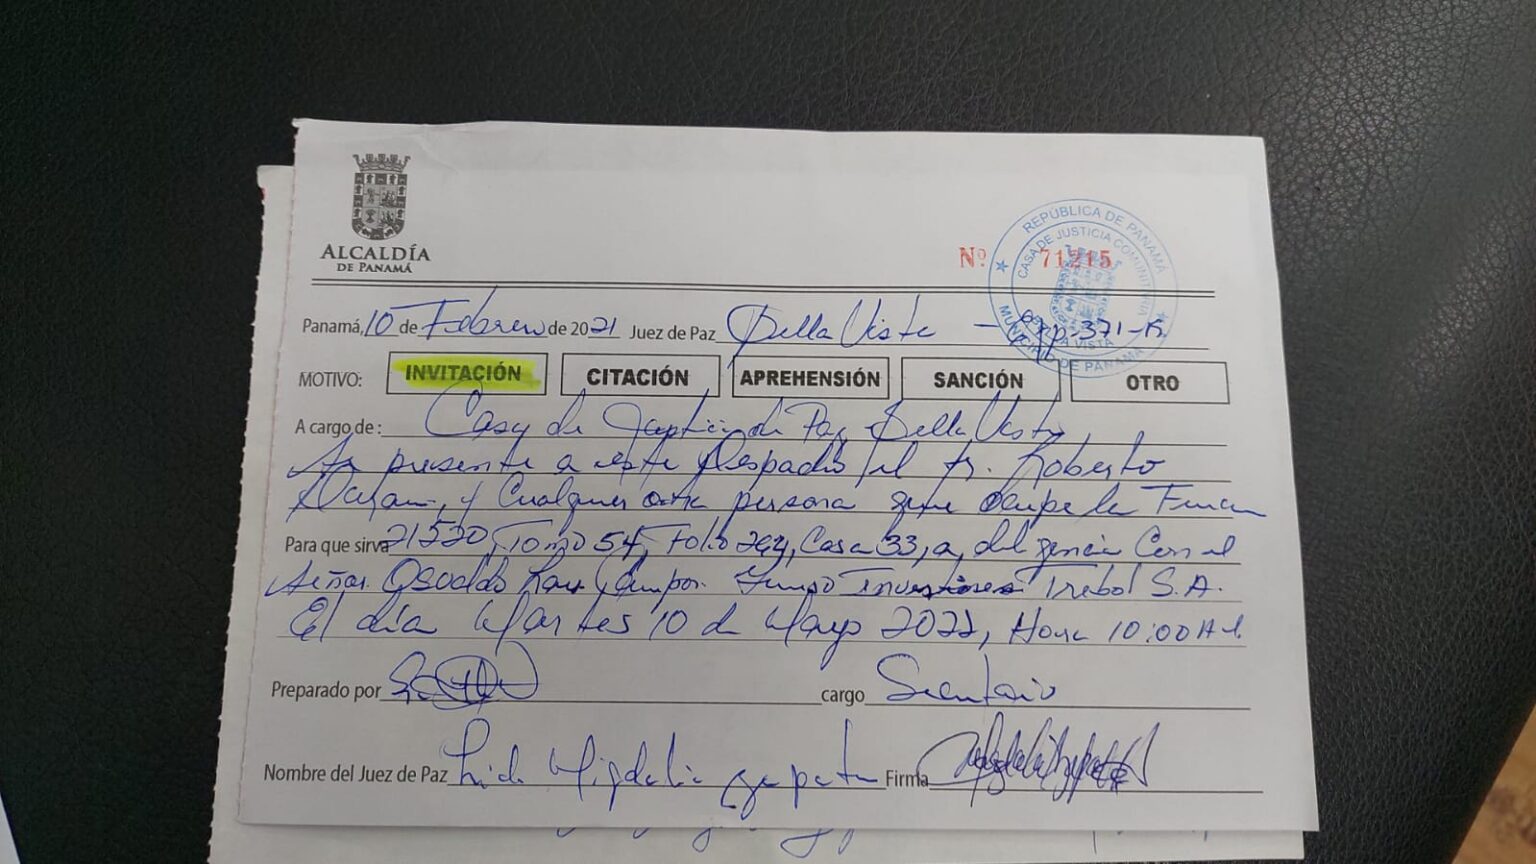 ALCALDÍA
DE PANAMÁ
Nº. 71215
REPÚBLICA DE PANAMÁ
CASA DE JUSTICIA COMUNITARIA
BELLA VISTA
MUNICIPIO DE PANAMÁ
Panamá, 10 de Febrero de 2021 Juez de Paz Bella Vista - Exp-371-K
MOTIVO: INVITACIÓN CITACIÓN APREHENSIÓN SANCIÓN OTRO
A cargo de: Casa de Justicia de Paz Bella Vista
presente a este Despacho el Sr. Roberto
y Cualquier otra persona que ocupe la Finca
Para que sirva 21520, Tomo 54, Folio 264, Casa 33, a diligencia Con el
Señor Osvaldo Grupo Inversiones Trebol S.A.
El día Martes 10 de Mayo 2022, Hora 10:00 A.M.
Preparado por cargo Secretario
Nombre del Juez de Paz Migdalia Zapata Firma